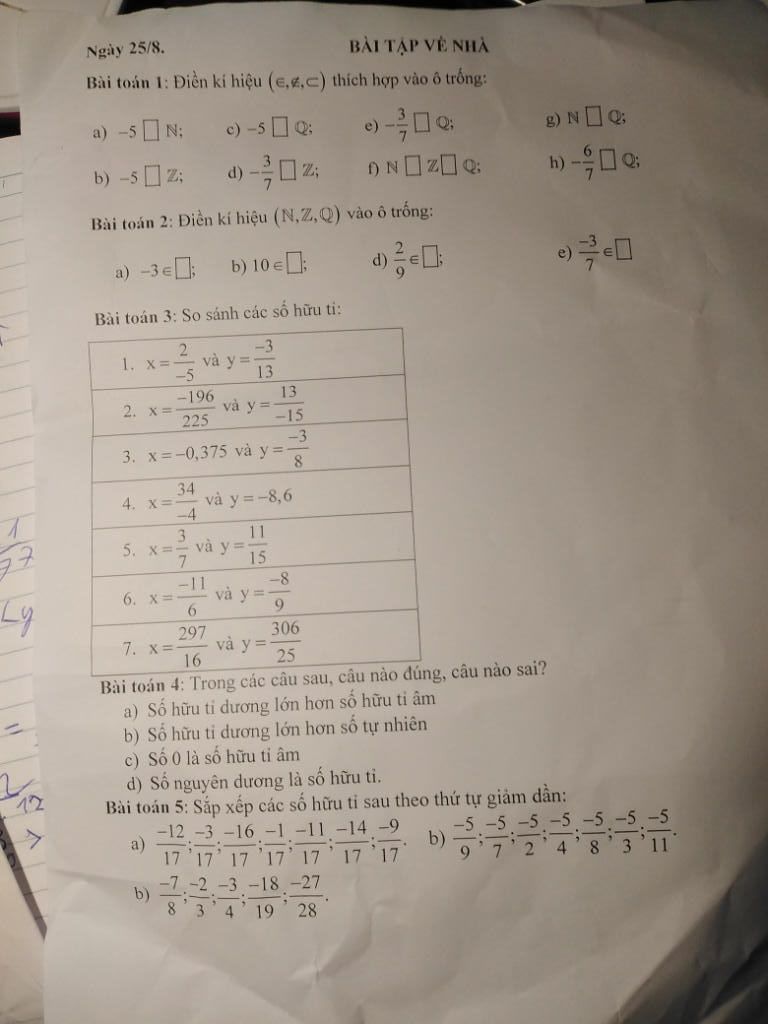 Ngày 25/8. BÀI TẬP VỀ NHÀ
Bài toán 1: Điền kí hiệu (∈,∉,⊂) thích hợp vào ô trống:
a) −5 □ ℕ; c) −5 □ ℚ; e) −3/7 □ ℚ; g) ℕ □ ℚ;
b) −5 □ ℤ; d) −3/7 □ ℤ; f) ℕ □ ℤ □ ℚ; h) −6/7 □ ℚ;
Bài toán 2: Điền kí hiệu (ℕ,ℤ,ℚ) vào ô trống:
a) −3 ∈ □; b) 10 ∈ □; d) 2/9 ∈ □; e) −3/7 ∈ □
Bài toán 3: So sánh các số hữu tỉ:
1. x = 2/−5 và y = −3/13
2. x = −196/225 và y = 13/−15
3. x = −0,375 và y = −3/8
4. x = 34/−4 và y = −8,6
5. x = 3/7 và y = 11/15
6. x = −11/6 và y = −8/9
7. x = 297/16 và y = 306/25
Bài toán 4: Trong các câu sau, câu nào đúng, câu nào sai?
a) Số hữu tỉ dương lớn hơn số hữu tỉ âm
b) Số hữu tỉ dương lớn hơn số tự nhiên
c) Số 0 là số hữu tỉ âm
d) Số nguyên dương là số hữu tỉ.
Bài toán 5: Sắp xếp các số hữu tỉ sau theo thứ tự giảm dần:
a) −12/17; −3/17; −16/17; −1/17; −11/17; −14/17; −9/17. b) −5/9; −5/7; −5/2; −5/4; −5/8; −5/3; −5/11.
b) −7/8; −2/3; −3/4; −18/19; −27/28.